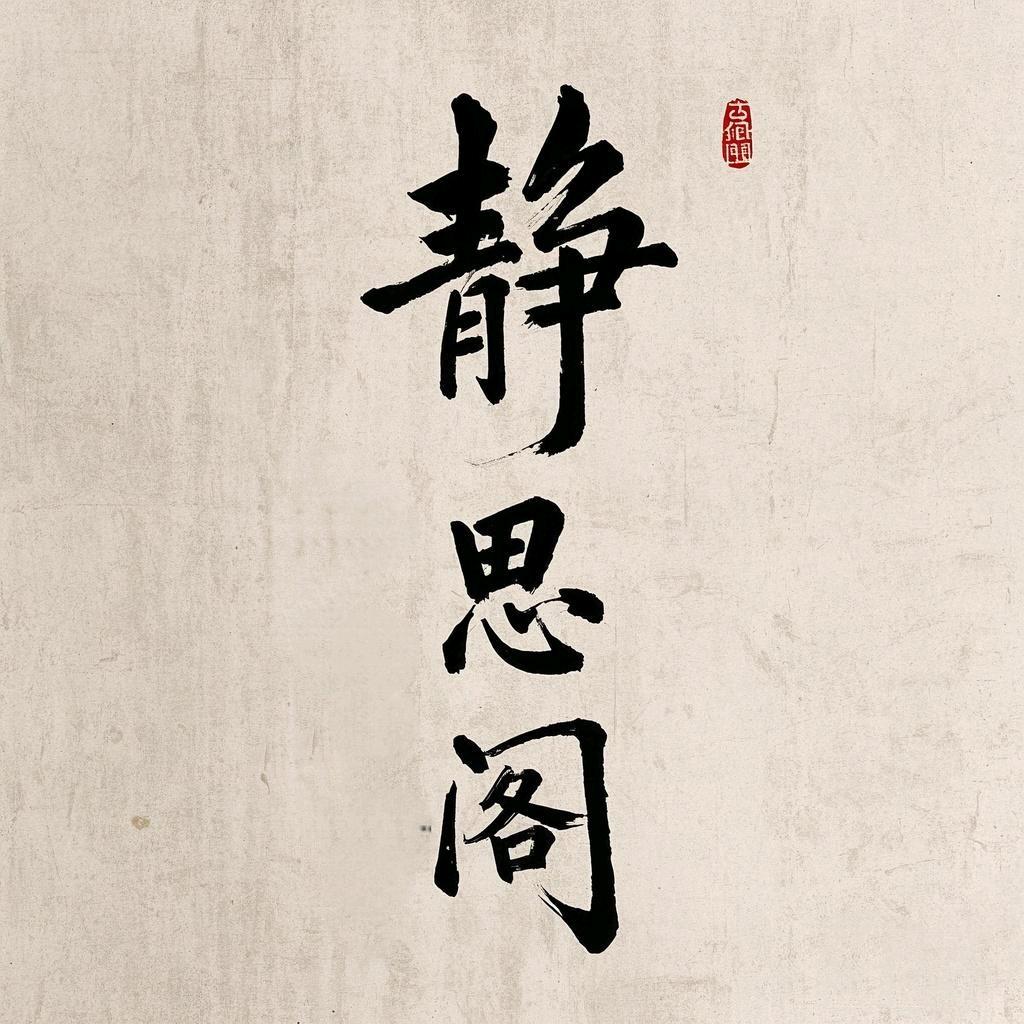 静思阁